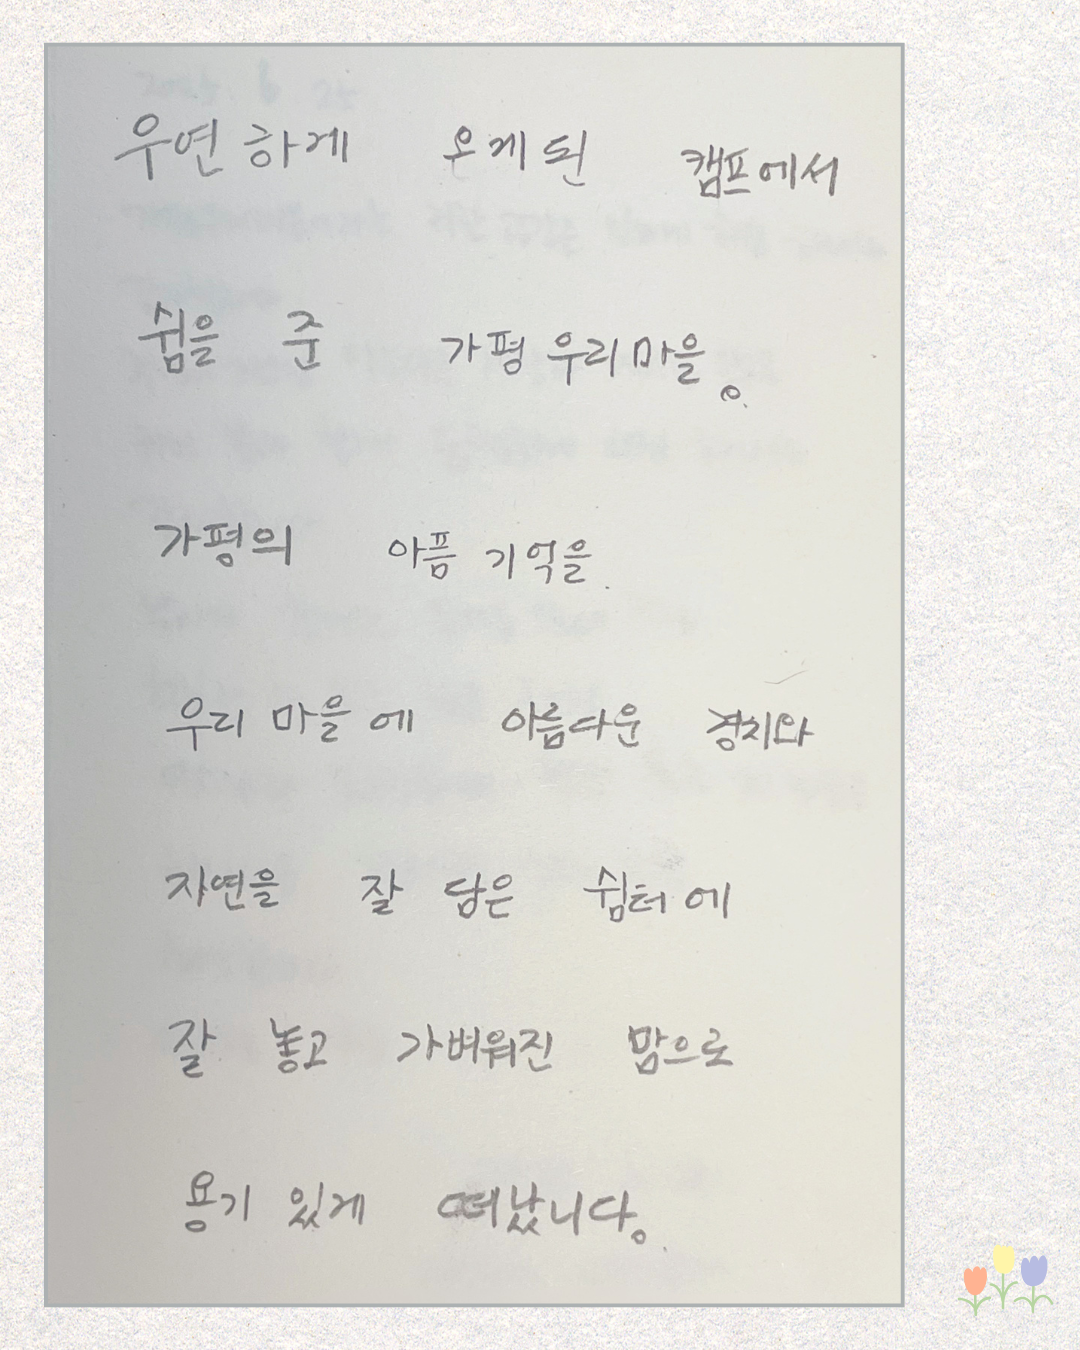 우연하게 오게된 캠프에서
쉼을 준 가평 우리마을。
가평의 아픔 기억을
우리 마을에 아름다운 경치와
자연을 잘 담은 쉼터에
잘 놓고 가벼워진 맘으로
용기 있게 떠났니다。